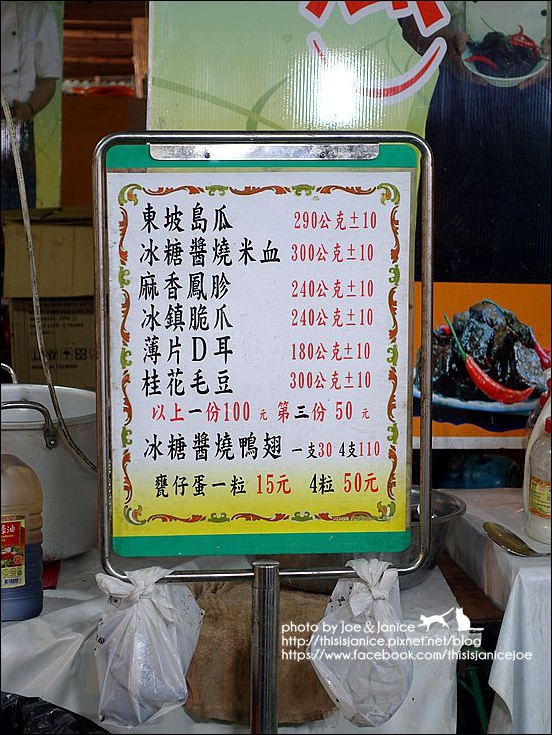 東坡島瓜 290公克±10
冰糖醬燒米血 300公克±10
麻香鳳胗 240公克±10
冰鎮脆爪 240公克±10
薄片D耳 180公克±10
桂花毛豆 300公克±10
以上一份100元 第三份50元
冰糖醬燒鴨翅 一支30 4支110
甕仔蛋一粒 15元 4粒 50元
photo by Joe & Janice
http://thisisjanice.pixnet.net/blog
https://www.facebook.com/thisisjanicejoe